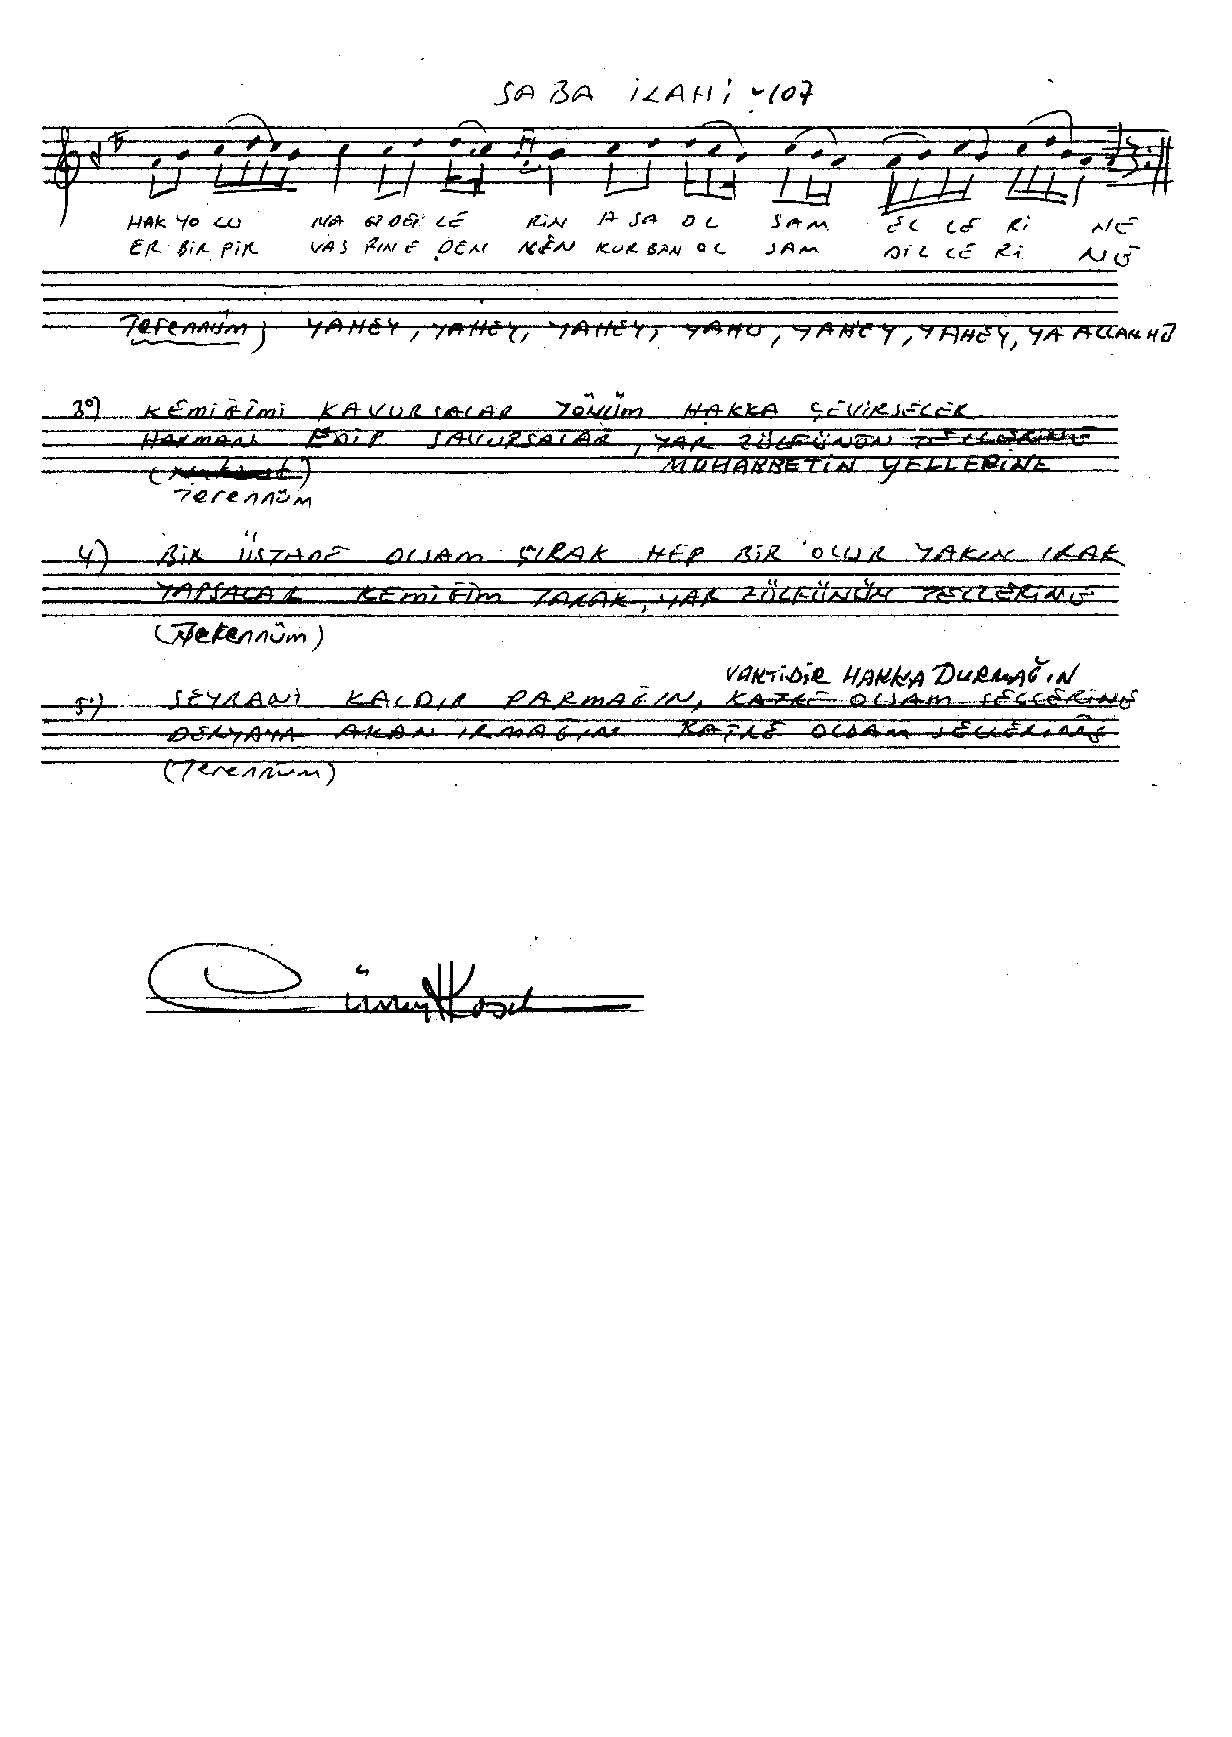 SABA İLAHİ -107
HAK YO LU NA GİDEN LE RİN A SA OL SAM EL LE Rİ NE
ER BİR PİR VAS FIN E DEN NEN KUR BAN OL SAM DİL LE Rİ NE
Terennüm; YAHEY, YAHEY, YAHEY, YAHU, YAHEY, YAHEY, YA ALLAH HÛ
3º) KEMİĞİMİ KAVURSALAR YÖNÜM HAKKA ÇEVİRSELER
HARMAN EDİP SAVURSALAR, YAR ZÜLFÜNÜN TELLERİNE
MUHABBETİN YELLERİNE
Terennüm
4) BİR ÜSTADE OLSAM ÇIRAK HEP BİR OLUR YAKIN IRAK
YAPSALAR KEMİĞİM TARAK, YAR ZÜLFÜNÜN TELLERİNE
(Terennüm)
VAKTİDİR HAKKA DURMAĞIN
5º) SEYRANİ KALDIR PARMAĞIN, KATRE OLSAM SELLERİNE
DERYAYA AKAN IRMAĞIN KATRE OLSAM SELLERİNE
(Terennüm)